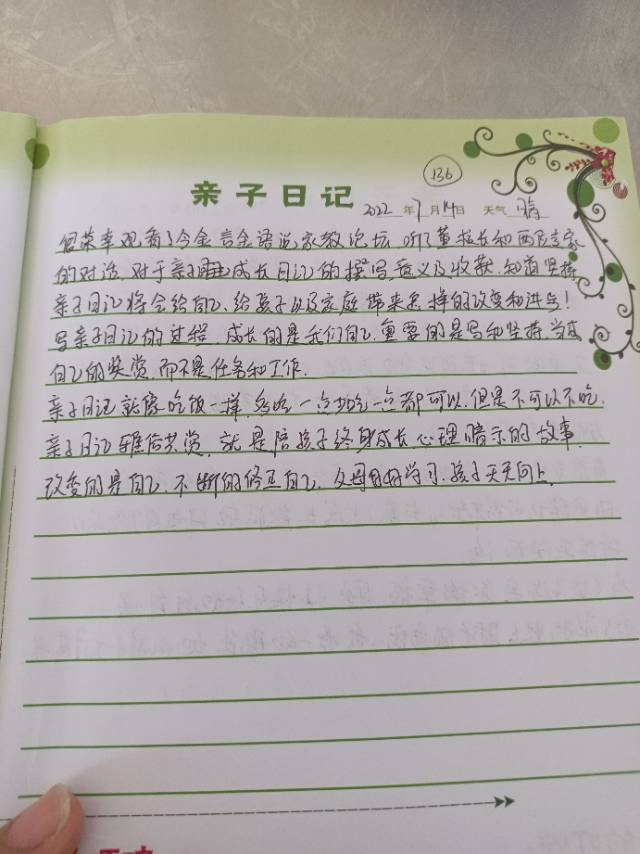 136
亲子日记 2022年7月14日 天气 晴
很荣幸观看了今金言金语说家教论坛,听了董校长和两位专家
的对话,对于亲子成长日记的撰写意义及收获,知道坚持
亲子日记将会给自己,给孩子以及家庭带来怎样的改变和进步!
写亲子日记的过程,成长的是我们自己,重要的是写和坚持,当成
自己的奖赏,而不是任务和工作.
亲子日记就像吃饭一样,多吃一点少吃一点都可以,但是不可以不吃.
亲子日记雅俗共赏,就是陪孩子终身成长心理暗示的故事.
改变的是自己,不断的修正自己,父母好好学习,孩子天天向上.